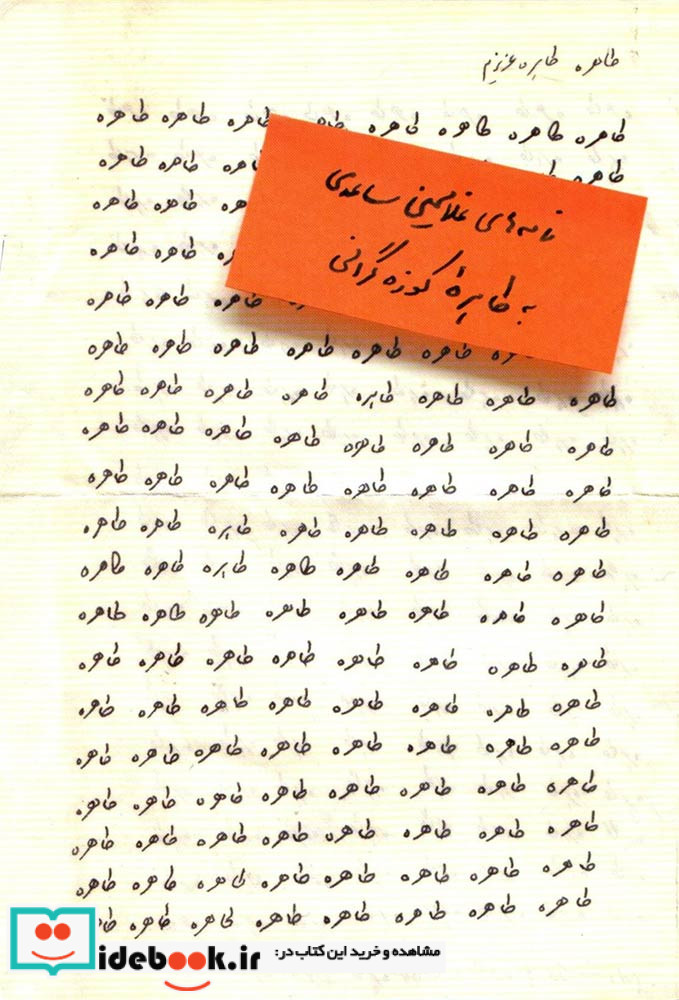 طاهره طاهره عزیزم
طاهره طاهره طاهره طاهره طاهره طاهره طاهره طاهره
طاهره طاهره طاهره
طاهره طاهره
طاهره طاهره
طاهره طاهره طاهره
طاهره طاهره طاهره طاهره طاهره طاهره
طاهره طاهره طاهره طاهره طاهره طاهره طاهره طاهره
طاهره طاهره طاهره طاهره طاهره طاهره طاهره طاهره
طاهره طاهره طاهره طاهره طاهره طاهره طاهره طاهره
طاهره طاهره طاهره طاهره طاهره طاهره طاهره طاهره
طاهره طاهره طاهره طاهره طاهره طاهره طاهره طاهره
طاهره طاهره طاهره طاهره طاهره طاهره طاهره طاهره
طاهره طاهره طاهره طاهره طاهره طاهره طاهره طاهره
طاهره طاهره طاهره طاهره طاهره طاهره طاهره طاهره
طاهره طاهره طاهره طاهره طاهره طاهره طاهره طاهره
طاهره طاهره طاهره طاهره طاهره طاهره طاهره طاهره
طاهره طاهره طاهره طاهره طاهره طاهره طاهره طاهره
طاهره طاهره طاهره طاهره طاهره طاهره طاهره طاهره
طاهره طاهره طاهره طاهره طاهره طاهره طاهره
نامه‌های غلامحسین ساعدی
به طاهرهٔ کوزه گرانی
مشاهده و خرید این کتاب در:
idebook.ir